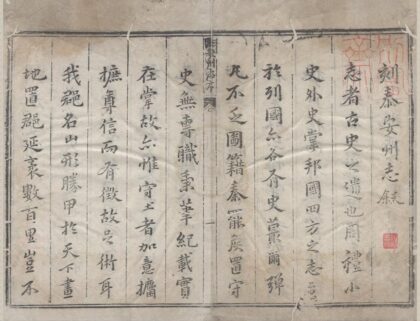 刻泰安州志叙
志者古史之遺也周禮小
史外史掌邦國四方之志
於列國亦各有史蕞爾彈
丸不乏圖籍秦罷矦置守
史無專職秉筆紀載實
在掌故亦惟守土者加意擴
摭尊信而有徵故足術耳
我郡名山形勝甲於天下畫
地置郡延袤數百里豈不